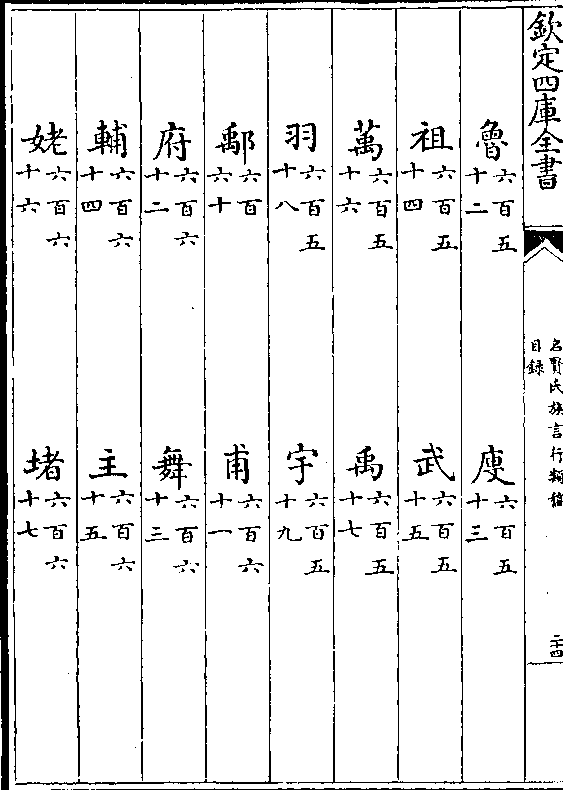 欽定四庫全書
名賢氏族言行類稿
目錄
二十四
魯六百五十二 庾六百五十三
祖六百五十四 武六百五十五
萬六百五十六 禹六百五十七
羽六百五十八 宇六百五十九
鄅六百六十 甫六百六十一
府六百六十二 舞六百六十三
輔六百六十四 主六百六十五
姥六百六十六 堵六百六十七